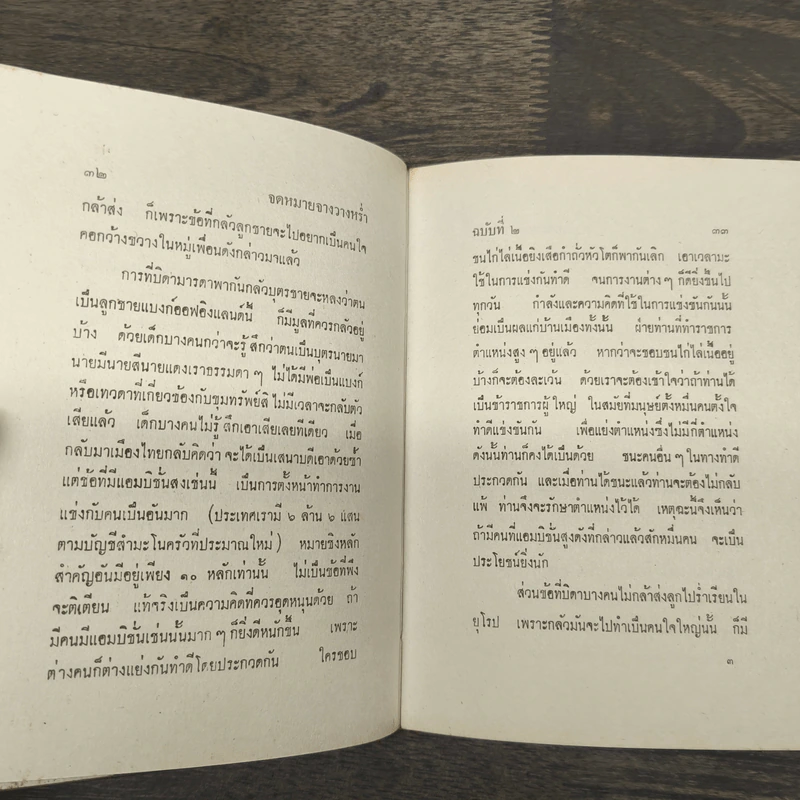 ๓๒
จดหมายจางวางหร่ำ
กล้าส่ง ก็เพราะข้อที่กลัวลูกชายจะไปอยากเป็นคนใจ
คอกว้างขวางในหมู่เพื่อนดังกล่าวมาแล้ว
การที่บิดามารดาพากันกลัวบุตรชายจะหลงว่าตน
เป็นลูกชายแบงก์ออฟอิงแลนด์นี้ ก็มีมูลที่ควรกลัวอยู่
บ้าง ด้วยเด็กบางคนกว่าจะรู้สึกว่าตนเป็นบุตรนายมา
นายมีนายสีนายแดงเราธรรมดา ๆ ไม่ได้มีพ่อเป็นแบงก์
หรือเทวดาที่เกี่ยวข้องกับขุมทรัพย์สิ ไม่มีเวลาจะกลับตัว
เสียแล้ว เด็กบางคนไม่รู้สึกเอาเสียเลยทีเดียว เมื่อ
กลับมาเมืองไทยกลับคิดว่า จะได้เป็นเสนาบดีเอาด้วยซ้ำ
แต่ข้อที่มีแอมบิชั่นสูงเช่นนี้ เป็นการตั้งหน้าทำการงาน
แข่งกับคนเป็นอันมาก (ประเทศเรามี ๖ ล้าน ๖ แสน
ตามบัญชีสำมะโนครัวที่ประมาณใหม่) หมายชิงหลัก
สำคัญอันมีอยู่เพียง ๑๐ หลักเท่านั้น ไม่เป็นข้อที่พึง
จะติเตียน แท้จริงเป็นความคิดที่ควรอุดหนุนด้วย ถ้า
มีคนมีแอมบิชั่นเช่นนั้นมาก ๆ ก็ยิ่งดีหนักขึ้น เพราะ
ต่างคนก็ต่างแย่งกันทำดีโดยประกวดกัน ใครชอบ
ฉบับที่ ๒ ๓๓
ชนไก่ไล่เนื้อยิงเสือกำถั่วหัวโตก็พากันเลิก เอาเวลามะ
ใช้ในการแข่งกันทำดี จนการงานต่าง ๆ ก็ดียิ่งขึ้นไป
ทุกวัน กำลังและความคิดที่ใช้ในการแข่งขันกันนั้น
ย่อมเป็นผลแก่บ้านเมืองทั้งนั้น ฝ่ายท่านที่ทำราชการ
ตำแหน่งสูง ๆ อยู่แล้ว หากว่าจะชอบชนไก่ไล่เนื้ออยู่
บ้างก็จะต้องละเว้น ด้วยเราจะต้องเข้าใจว่าถ้าท่านได้
เป็นข้าราชการผู้ใหญ่ ในสมัยที่มนุษย์ตั้งหมื่นคนตั้งใจ
ทำดีแข่งขันกัน เพื่อแย่งตำแหน่งซึ่งไม่มีกี่ตำแหน่ง
ดังนั้นท่านก็คงได้เป็นด้วย ชนะคนอื่น ๆ ในทางทำดี
ประกวดกัน และเมื่อท่านได้ชนะแล้วท่านจะต้องไม่กลับ
แพ้ ท่านจึงจะรักษาตำแหน่งไว้ได้ เหตุฉะนี้จึงเห็นว่า
ถ้ามีคนที่แอมบิชั่นสูงดังที่กล่าวแล้วสักหมื่นคน จะเป็น
ประโยชน์ยิ่งนัก
ส่วนข้อที่บิดาบางคนไม่กล้าส่งลูกไปร่ำเรียนใน
ยุโรป เพราะกลัวมันจะไปทำเป็นคนใจใหญ่นั้น ก็มี
๓